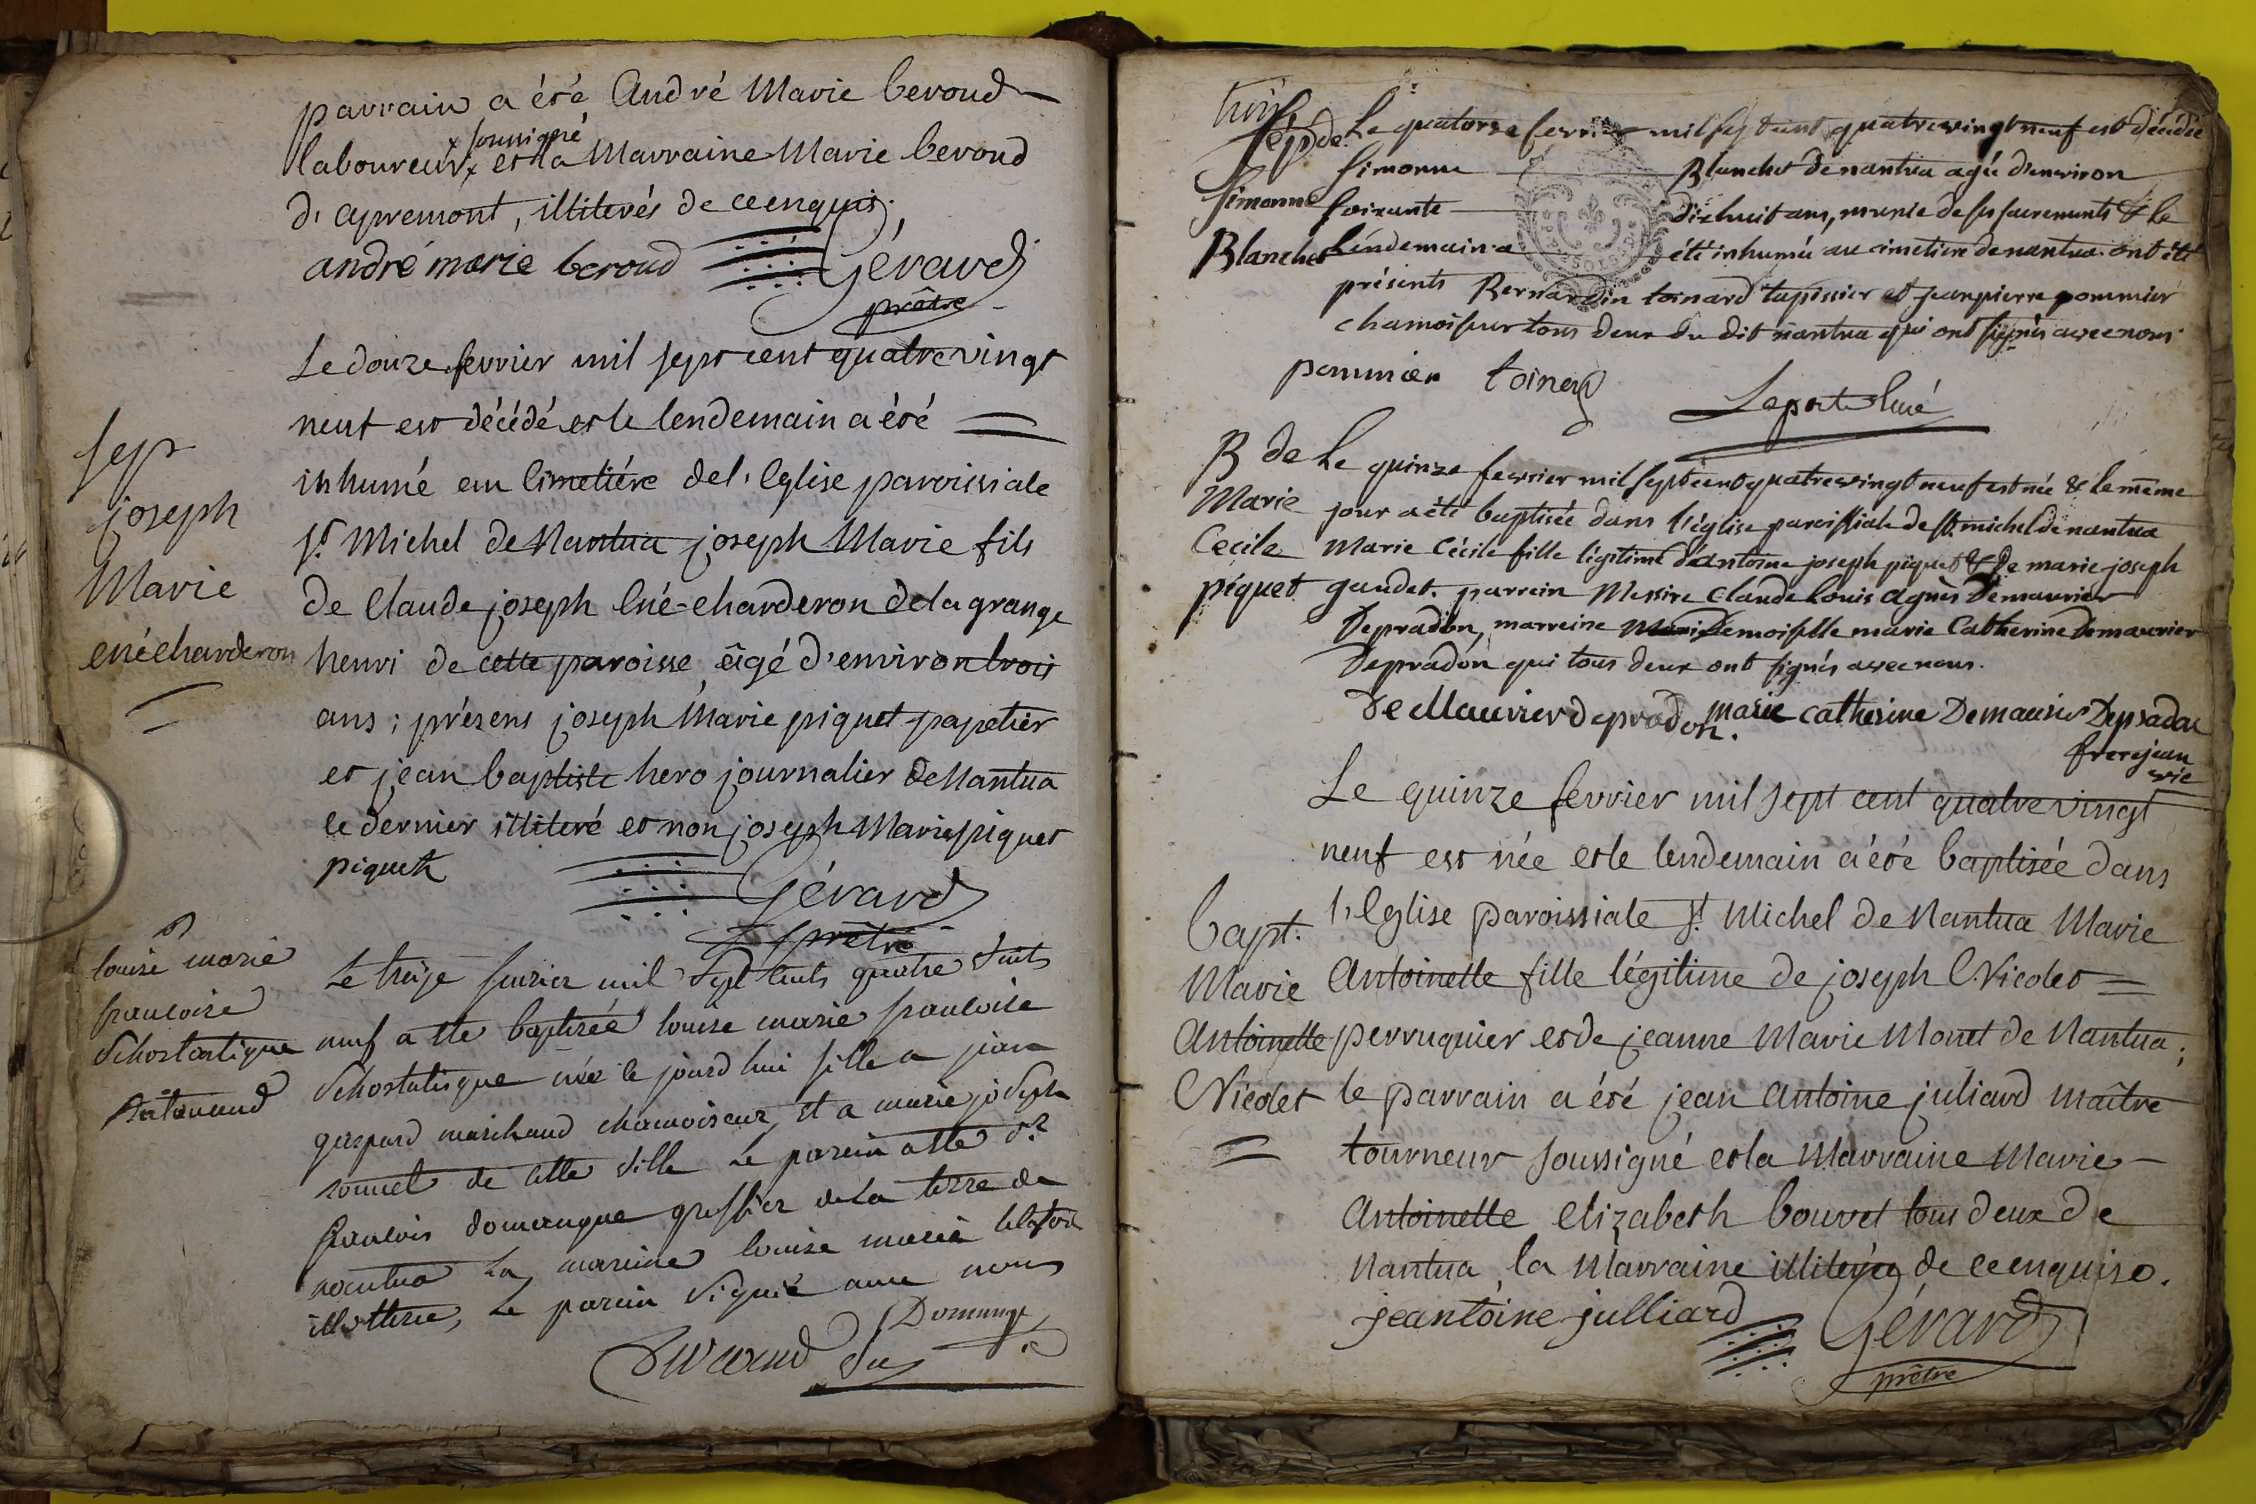 parrain a été André Marie beroud
x soussigné
laboureur x et la Marraine Marie beroud
d'apremont, illiterés de ce enquis.
andré marie beroud Gérard
prêtre
Le douze fevrier mil sept cent quatre vingt
neuf est décédé et le lendemain a été =
inhumé au Cimetiére de l'Eglise paroissiale
St. Michel de Nantua joseph Marie fils
de Claude joseph Ené-charderon de la grange
henri de cette paroisse, âgé d'environ trois
ans ; présens joseph Marie piquet papetier
et jean baptiste hero journalier de Nantua
le dernier illiteré et non joseph Marie piquet
piquet
Gérard
prêtre
sep
joseph
Marie
ené charderon
B
louise marie
francoise
Schostastique
Le treize fevrier mil sept cents quatre vints
neuf a ete baptisée louise marie francoise
Schostatisque née le jourd hui fille a jean
gaspard marchand chamoiseur, et a marie joseph
sonnet de cette ville le parein a ete sr
francois domangue greffier de la terre de
nantua La mareine louise marie
illetterée, le parein signé avec nous
Domange
trois
Sép. de
Simonne
Blanchet
Le quatorze fevrier mil sept cent quatre vingt neuf est décédée
Simonne Blanchet de nantua agée d'environ
soixante dix huit ans, munie de ses sacrements & le
lendemain a été inhumée au cimetiere de nantua. ont été
présents Bernardin toinard tapissier et jean pierre pommier
chamoiseur tous deux du dit nantua qui ont signés avec nous.
pommier toinard
Laporte Curé
B de
Marie
Cecile
piquet
Le quinze fevrier mil sept cent quatre vingt neuf est née & le même
jour a été baptisée dans l'église paroissiale de St. michel de nantua
Marie Cécile fille légitime d'antoine joseph piquet & de marie joseph
gaudet. parrein Messire Claude Louis Agnès Demaurier
Depradon, marreine Demoiselle marie Catherine Demaurier
Depradon qui tous deux ont signés avec nous.
de Maurier depradon. marie catherine Demaurier Depradon
frerejean
vic
Le quinze fevrier mil sept cent quatre vingt
neuf est née et le lendemain a été baptisée dans
l'Eglise paroissiale St. Michel de Nantua Marie
Antoinette fille légitime de joseph Nicolet =
perruquier et de jeanne Marie Monet de Nantua ;
le parrain a été jean Antoine juliard maître
tourneur soussigné et la Marraine Marie -
Antoinette elizabeth bouvet tous deux de
Nantua, la Marraine illiterée de ce enquise.
jeantoine julliard Gérard
prêtre
bapt.
Marie
Antoinette
Nicolet